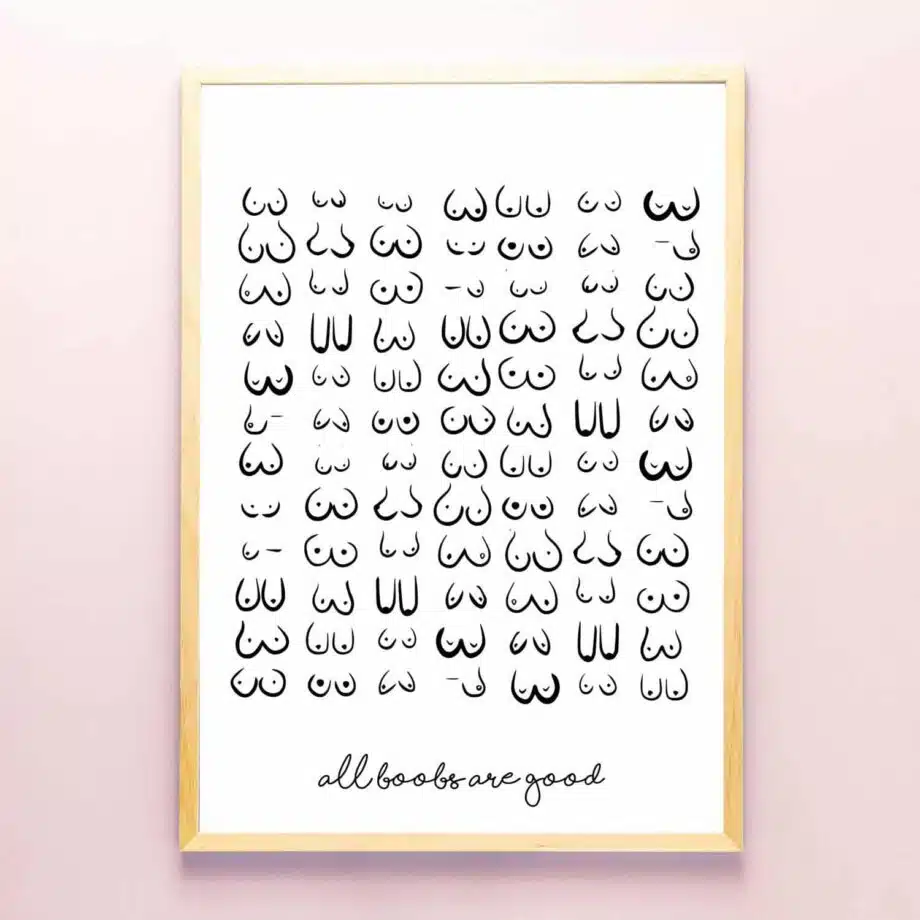 all boobs are good